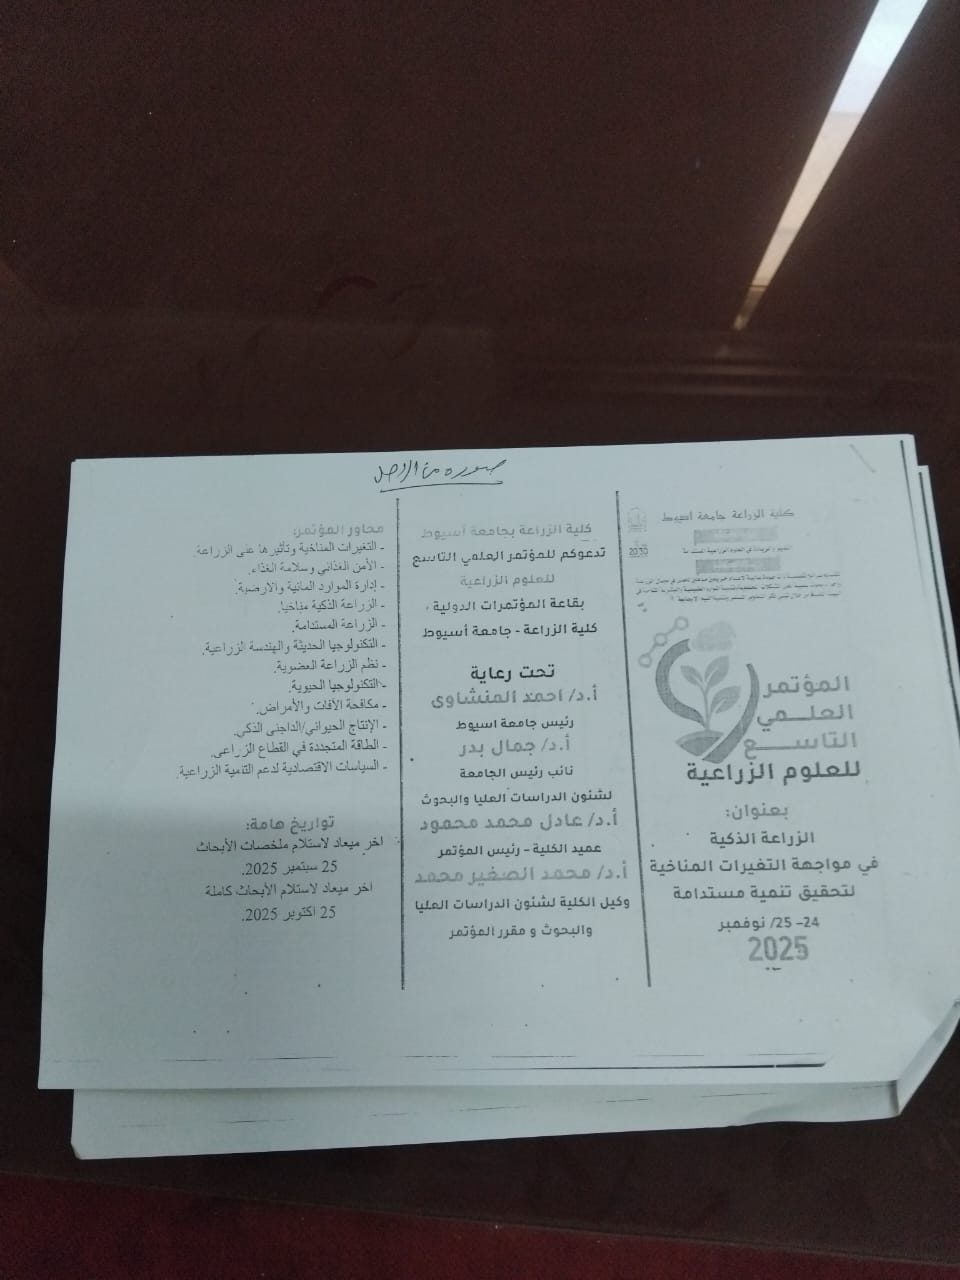 صوره من الاصل
كلية الزراعة جامعة اسيوط
2030
المؤتمر
العلمي
التاسع
للعلوم الزراعية
بعنوان:
الزراعة الذكية
في مواجهة التغيرات المناخية
لتحقيق تنمية مستدامة
24- 25/ نوفمبر
2025
كلية الزراعة بجامعة أسيوط
تدعوكم للمؤتمر العلمي التاسع
للعلوم الزراعية
بقاعة المؤتمرات الدولية ،
كلية الزراعة - جامعة أسيوط
تحت رعاية
أ.د/ احمد المنشاوى
رئيس جامعة اسيوط
أ.د/ جمال بدر
نائب رئيس الجامعة
لشئون الدراسات العليا والبحوث
أ.د/ عادل محمد محمود
عميد الكلية - رئيس المؤتمر
أ.د/ محمد الصغير محمد
وكيل الكلية لشئون الدراسات العليا
والبحوث و مقرر المؤتمر
محاور المؤتمر:
- التغيرات المناخية وتأثيرها على الزراعة.
- الأمن الغذائي وسلامة الغذاء.
- إدارة الموارد المائية والارضية.
- الزراعة الذكية مناخيا.
- الزراعة المستدامة.
- التكنولوجيا الحديثة والهندسة الزراعية.
- نظم الزراعة العضوية.
- التكنولوجيا الحيوية.
- مكافحة الآفات والأمراض.
- الإنتاج الحيواني/الداجنى الذكي.
- الطاقة المتجددة في القطاع الزراعى.
- السياسات الاقتصادية لدعم التنمية الزراعية.
تواريخ هامة:
اخر ميعاد لاستلام ملخصات الأبحاث
25 سبتمبر 2025.
اخر ميعاد لاستلام الأبحاث كاملة
25 اكتوبر 2025.